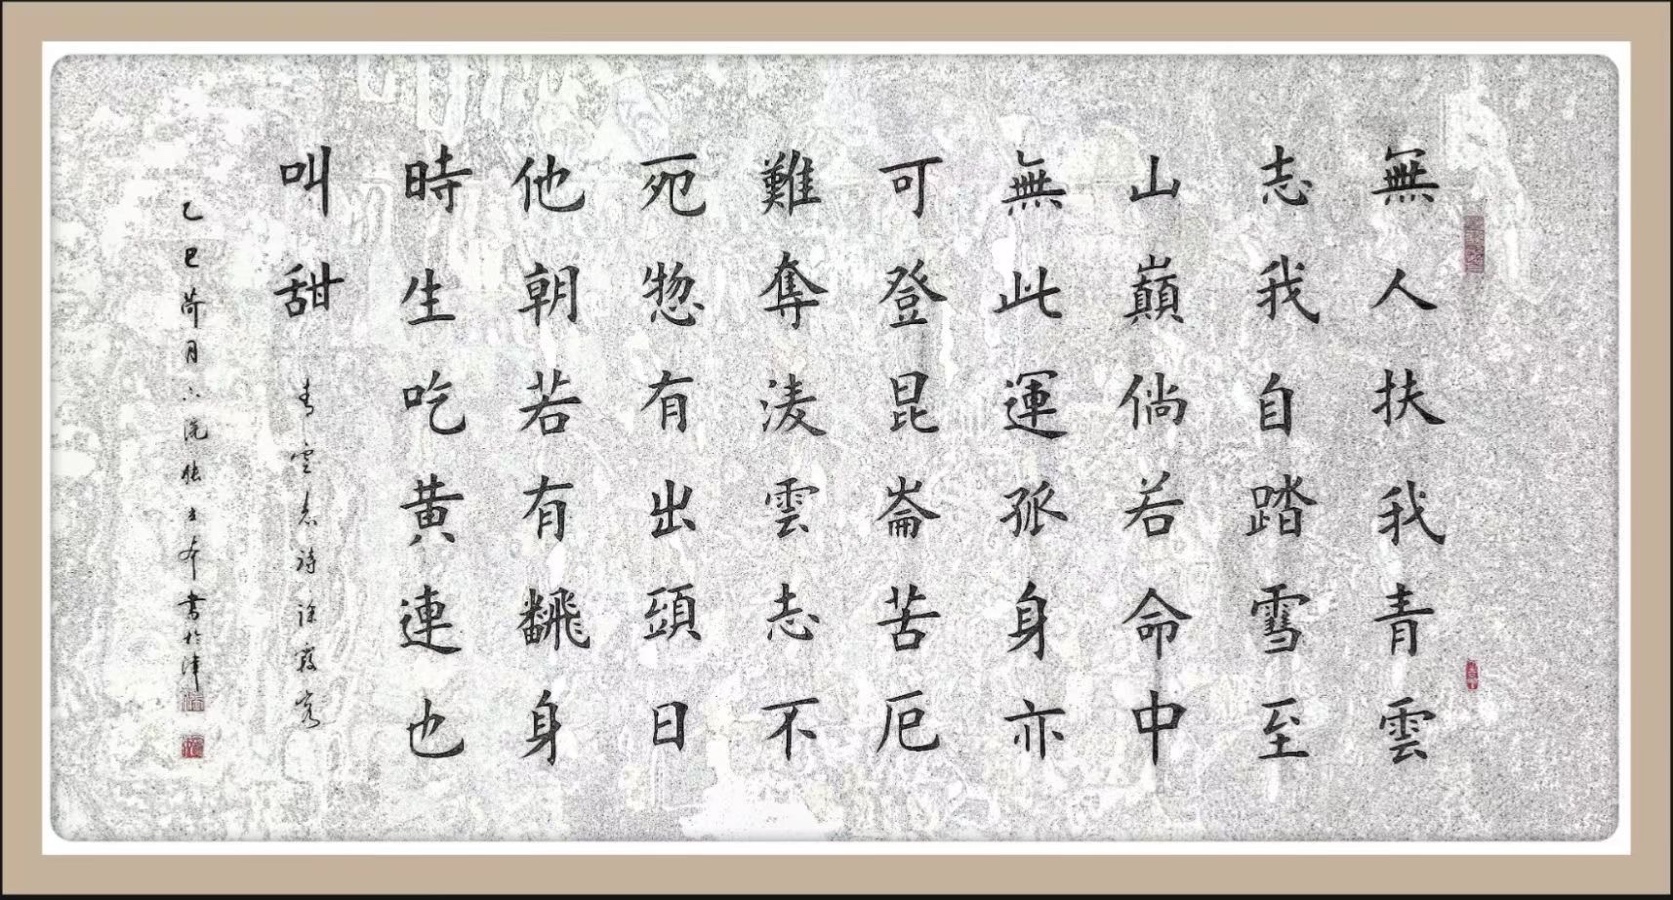 無人扶我青雲
志我自踏雪至
山巔倘若命中
無此運孤身亦
可登昆崙苦厄
難奪淩雲志不
死惣有出頭日
他朝若有飜身
時生吃黄連也
叫甜
青雲志詩徐霞客
乙巳荷月
書於津